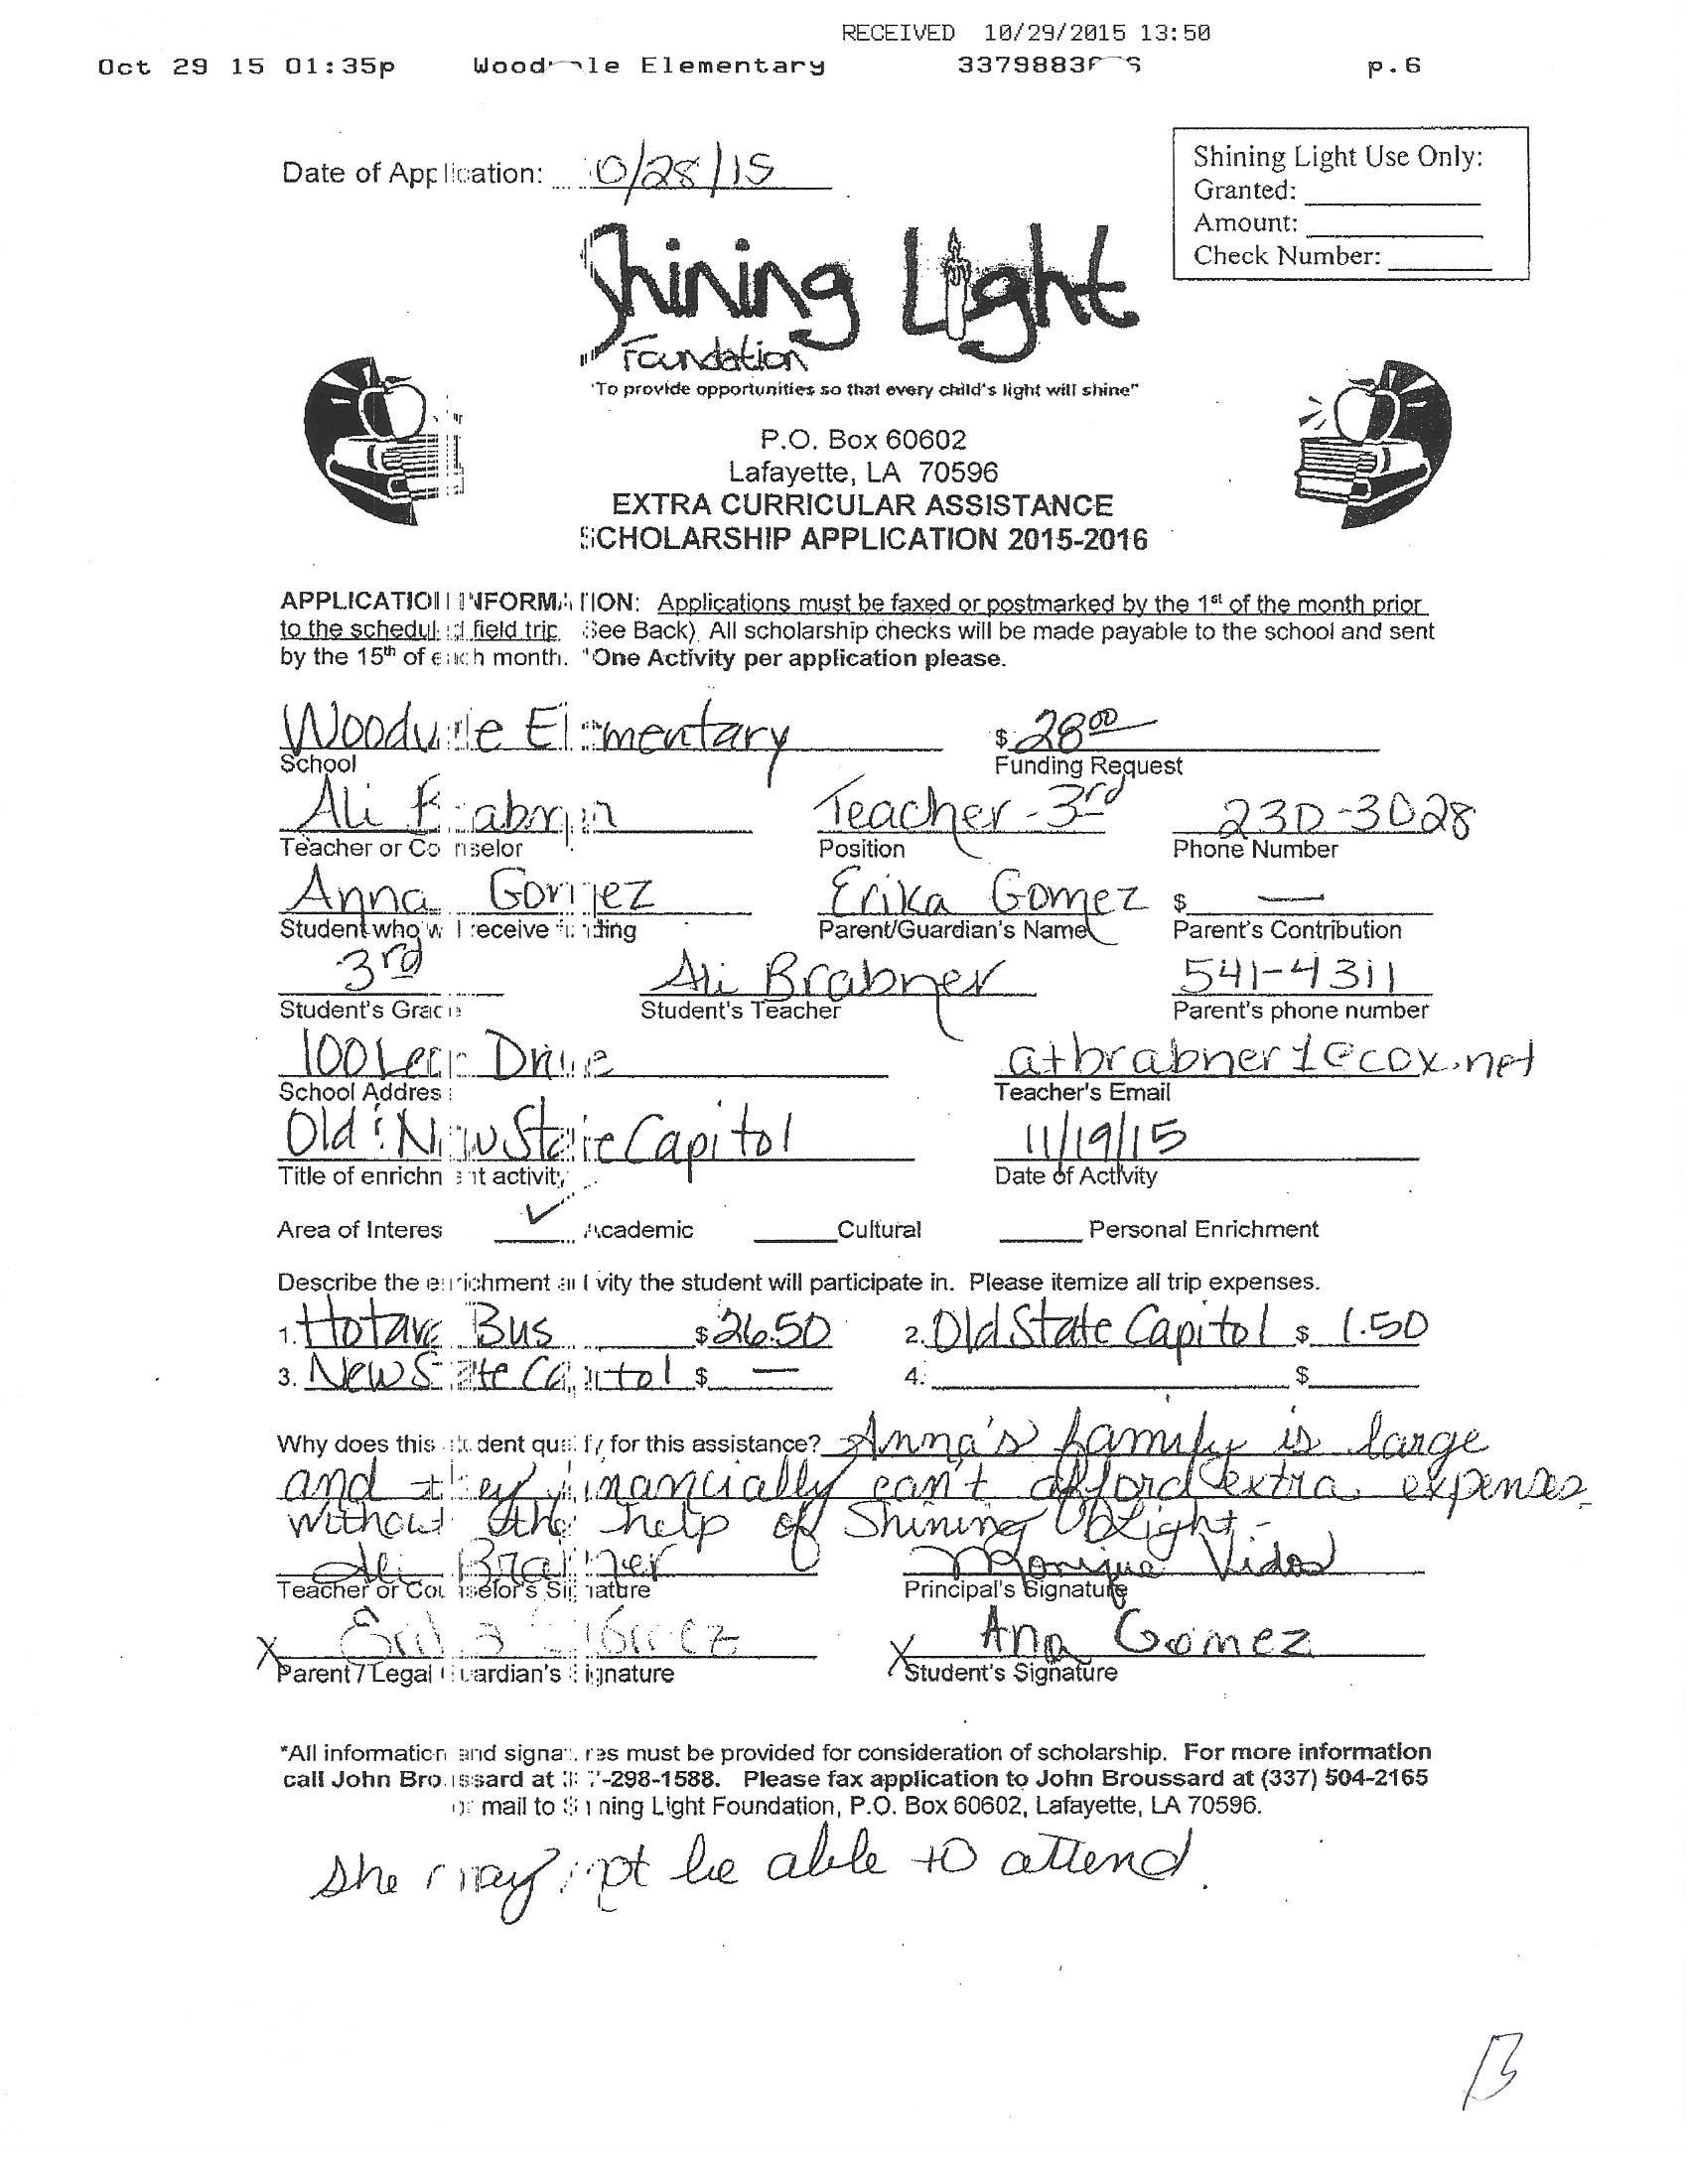 RECEIVED 10/29/2015 13:50
Oct 29 15 01:35p Elementary p.6
Date of Application: 0/28/15
Shining Light Use Only:
Granted:
Amount:
Check Number:
Shining Light
Foundation
"To provide opportunities so that every child's light will shine"
P.O. Box 60602
Lafayette, LA 70596
EXTRA CURRICULAR ASSISTANCE
SCHOLARSHIP APPLICATION 2015-2016
APPLICATION INFORMATION: Applications must be faxed or postmarked by the 1st of the month prior
to the scheduled field trip (See Back). All scholarship checks will be made payable to the school and sent
by the 15th of each month. *One Activity per application please.
Woodvale Elementary $ 28.00
School Funding Request
Ali Brabner Teacher - 3rd 230-3028
Teacher or Counselor Position Phone Number
Anna Gomez Erika Gomez $ —
Student who will receive funding Parent/Guardian's Name Parent's Contribution
3rd Ali Brabner 541-4311
Student's Grade Student's Teacher Parent's phone number
100 Drive atbrabner1@cox.net
School Address Teacher's Email
Old & New State Capitol 11/19/15
Title of enrichment activity Date of Activity
Area of Interest ✓ Academic Cultural Personal Enrichment
Describe the enrichment activity the student will participate in. Please itemize all trip expenses.
1. Hotard Bus $ 26.50 2. Old State Capitol $ 1.50
3. New State Capitol $ — 4. $
Why does this student qualify for this assistance? Anna's family is large
and they financially can't afford extra expenses
without the help of Shining Light.
Ali Brabner Monique Vidos
Teacher or Counselor's Signature Principal's Signature
X Erika Gomez X Ana Gomez
Parent / Legal Guardian's Signature Student's Signature
*All information and signatures must be provided for consideration of scholarship. For more information
call John Broussard at 337-298-1588. Please fax application to John Broussard at (337) 504-2165
or mail to Shining Light Foundation, P.O. Box 60602, Lafayette, LA 70596.
She may not be able to attend.